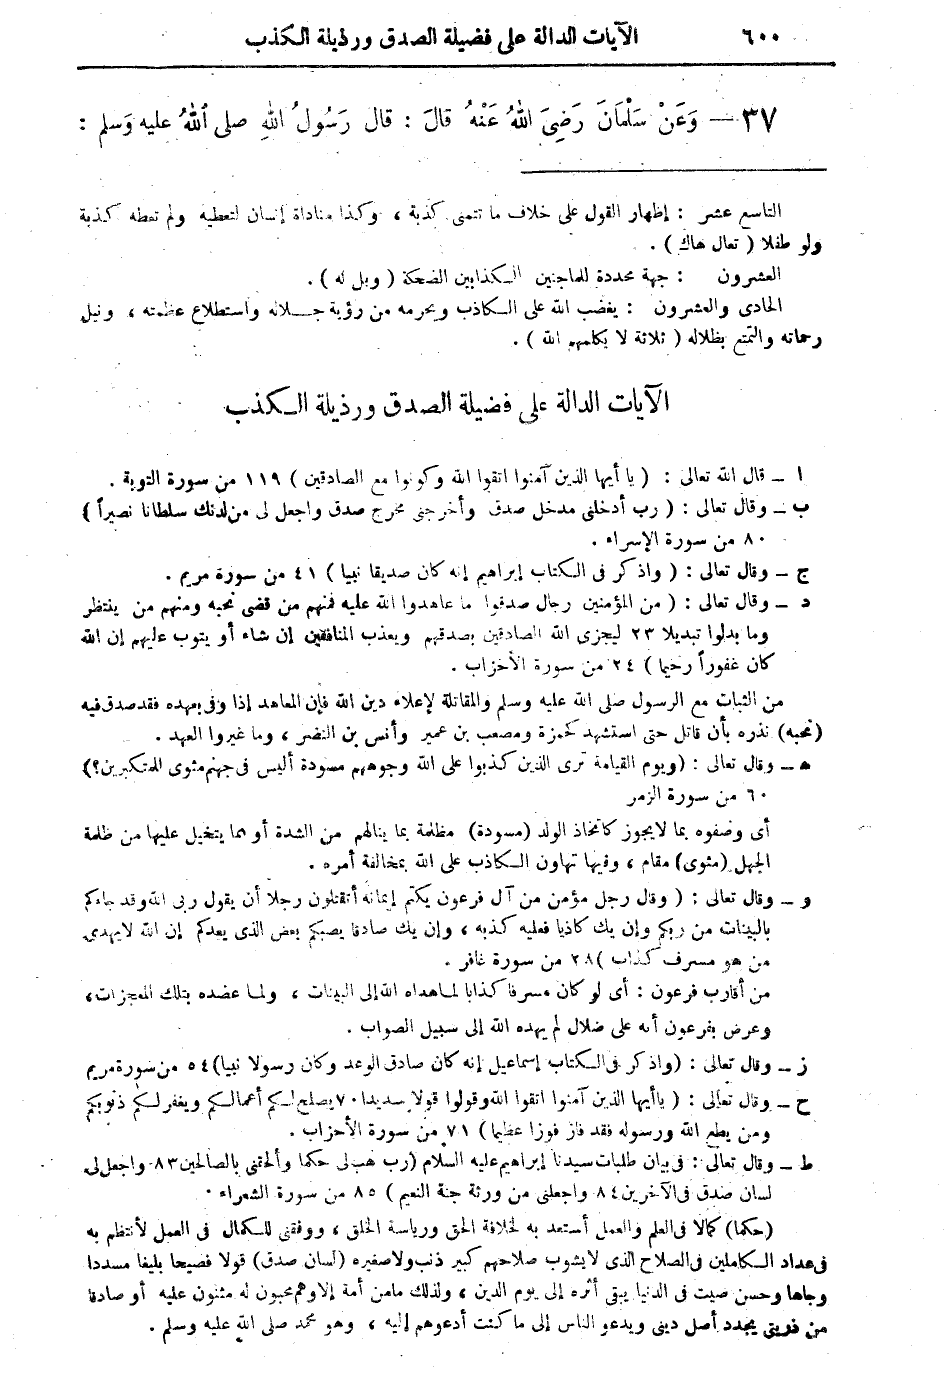 ٦٠٠ الآيات الدالة على فضيلة الصدق ورذيلة الكذب
٣٧ — وَعَنْ سَلْمَانَ رَضِيَ اللهُ عَنْهُ قَالَ : قال رَسُولُ اللهِ صلى اللهُ عليه وَسلم :
التاسع عشر : إظهار القول على خلاف ما تتمنى كذبة ، وكذا مناداة إنسان لتعطيه ولم تعطه كذبة
ولو طفلا ( تعال هاك ) .
العشرون : جهة محددة للماجنين الكذابين الضحكة ( ويل له ) .
الحادى والعشرون : يغضب الله على الكاذب ويحرمه من رؤية جلاله واستطلاع عظمته ، ونيل
رحماته والتمتع بظلاله ( ثلاثة لا يكلمهم الله ) .
الآيات الدالة على فضيلة الصدق ورذيلة الكذب
ا — قال الله تعالى : ( يا أيها الذين آمنوا اتقوا الله وكونوا مع الصادقين ) ١١٩ من سورة التوبة .
ب — وقال تعالى : ( رب أدخلنى مدخل صدق وأخرجنى مخرج صدق واجعل لى من لدنك سلطانا نصيراً )
٨٠ من سورة الإسراء .
ج — وقال تعالى : ( واذكر فى الكتاب إبراهيم إنه كان صديقا نبيا ) ٤١ من سورة مريم .
د — وقال تعالى : ( من المؤمنين رجال صدقوا ما عاهدوا الله عليه فمنهم من قضى نحبه ومنهم من ينتظر
وما بدلوا تبديلا ٢٣ ليجزى الله الصادقين بصدقهم ويعذب المنافقين إن شاء أو يتوب عليهم إن الله
كان غفوراً رحيما ) ٢٤ من سورة الأحزاب .
من الثبات مع الرسول صلى الله عليه وسلم والمقاتلة لإعلاء دين الله فإن المعاهد إذا وفى بعهده فقد صدق فيه
(نحبه) نذره بأن قاتل حتى استشهد كحمزة ومصعب بن عمير وأنس بن النضر ، وما غيروا العهد .
هـ — وقال تعالى : (ويوم القيامة ترى الذين كذبوا على الله وجوههم مسودة أليس فى جهنم مثوى للمتكبرين؟)
٦٠ من سورة الزمر
أى وصفوه بما لا يجوز كاتخاذ الولد (مسودة) مظلمة بما ينالهم من الشدة أو مما يتخيل عليها من ظلمة
الجهل (مثوى) مقام ، وفيها تهاون الكاذب على الله بمخالفة أمره .
و — وقال تعالى : ( وقال رجل مؤمن من آل فرعون يكتم إيمانه أتقتلون رجلا أن يقول ربى الله وقد جاءكم
بالبينات من ربكم وإن يك كاذبا فعليه كذبه ، وإن يك صادقا يصبكم بعض الذى يعدكم إن الله لا يهدى
من هو مسرف كذاب ) ٢٨ من سورة غافر .
من أقارب فرعون : أى لو كان مسرفا كذابا لما هداه الله إلى البينات ، ولما عضده بتلك المعجزات ،
وعرض بفرعون أنه على ضلال لم يهده الله إلى سبيل الصواب .
ز — وقال تعالى : (واذكر فى الكتاب إسماعيل إنه كان صادق الوعد وكان رسولا نبيا) ٥٤ من سورة مريم
ح — وقال تعالى : ( ياأيها الذين آمنوا اتقوا الله وقولوا قولا سديدا ٧٠ يصلح لكم أعمالكم ويغفر لكم ذنوبكم
ومن يطع الله ورسوله فقد فاز فوزا عظيما ) ٧١ من سورة الأحزاب .
ط — وقال تعالى : فى بيان طلبات سيدنا إبراهيم عليه السلام (رب هب لى حكما وألحقنى بالصالحين ٨٣ واجعل لى
لسان صدق فى الآخرين ٨٤ واجعلنى من ورثة جنة النعيم ) ٨٥ من سورة الشعراء .
(حكما) كمالا فى العلم والعمل أستعد به لخلافة الحق ورياسة الخلق ، ووفقنى للكمال فى العمل لأنتظم به
فى عداد الكاملين فى الصلاح الذى لا يشوب صلاحهم كبير ذنب ولا صغيره (لسان صدق) قولا فصيحا بليغا مسددا
وجاها وحسن صيت فى الدنيا يبقى أثره إلى يوم الدين ، ولذلك مامن أمة إلا وهم محبون له مثنون عليه أو صادقا
من ذريتى يجدد أصل دينى ويدعو الناس إلى ما كنت أدعوهم إليه ، وهو محمد صلى الله عليه وسلم .